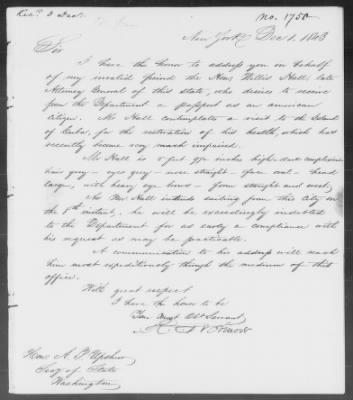 Recd. 3 Decr.
No. 1750
New York Dec 1. 1843
Sir
I have the honor to address you on behalf
of my invalid friend the Hon. Willis Hall, late
Attorney General of this state, who desires to receive
from the Department a passport as an American
Citizen. Mr Hall contemplates a visit to the Island
of Cuba, for the restoration of his health, which has
recently become very much impaired.
Mr Hall is 5 feet high - dark complexion
hair grey - eyes grey - nose straight - face oval - head
large, with heavy eye brows - form straight and erect,
As Mr Hall intends sailing from this City on
the 8th instant, he will be exceedingly indebted
to the Department for as early a compliance with
his request as may be practicable.
A communication to his address will reach
him most expeditiously through the medium of this
office.
With great respect
I have the honor to be
Your Most Obt Servant,
Hon. A. P. Upshur
Secy of State
Washington